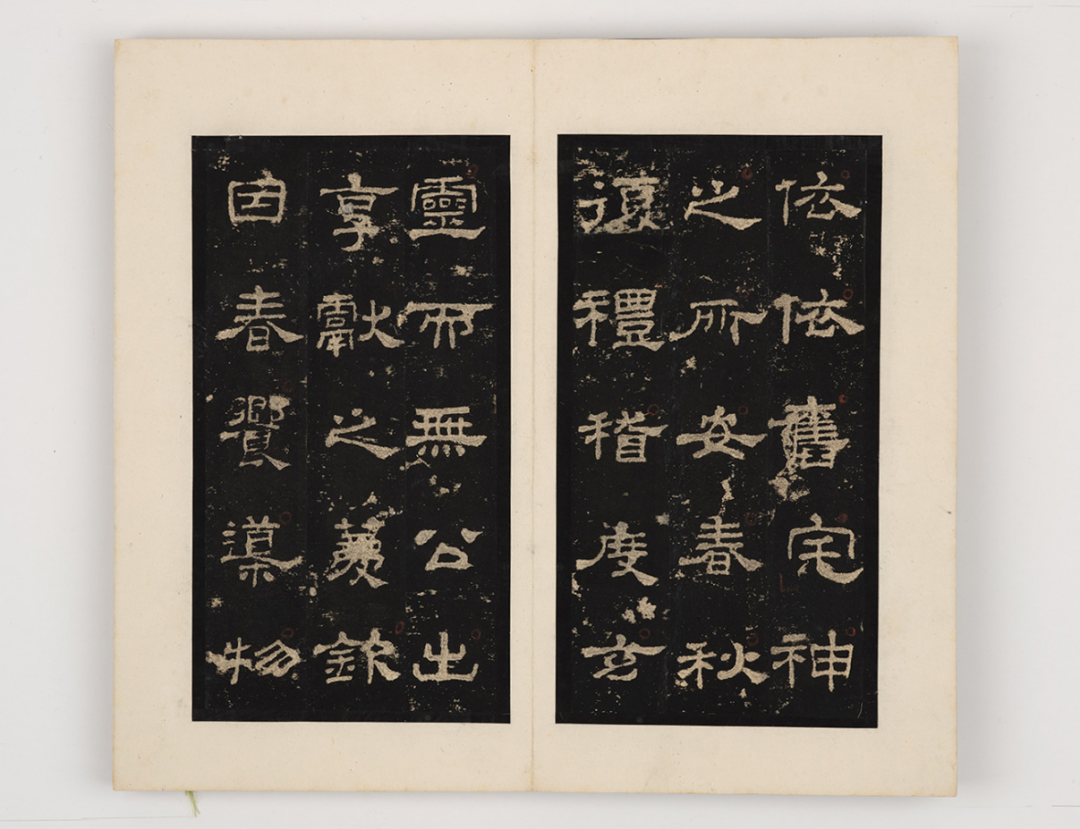 依依舊宅神
之所安春秋
復禮稽度玄
靈而無公出
享獻之薦欽
因春饗導物